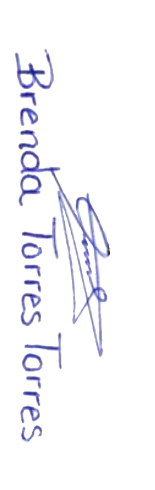 Brenda Torres Torres